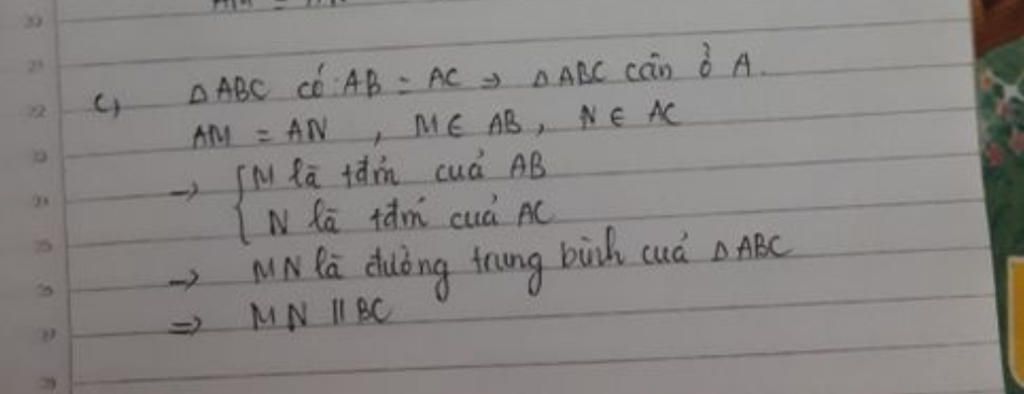 c) ΔABC có: AB = AC => ΔABC cân ở A.
AM = AN , M ∈ AB, N ∈ AC
-> { M là tđm của AB
N là tđm của AC
-> MN là đường trung bình của ΔABC
=> MN // BC